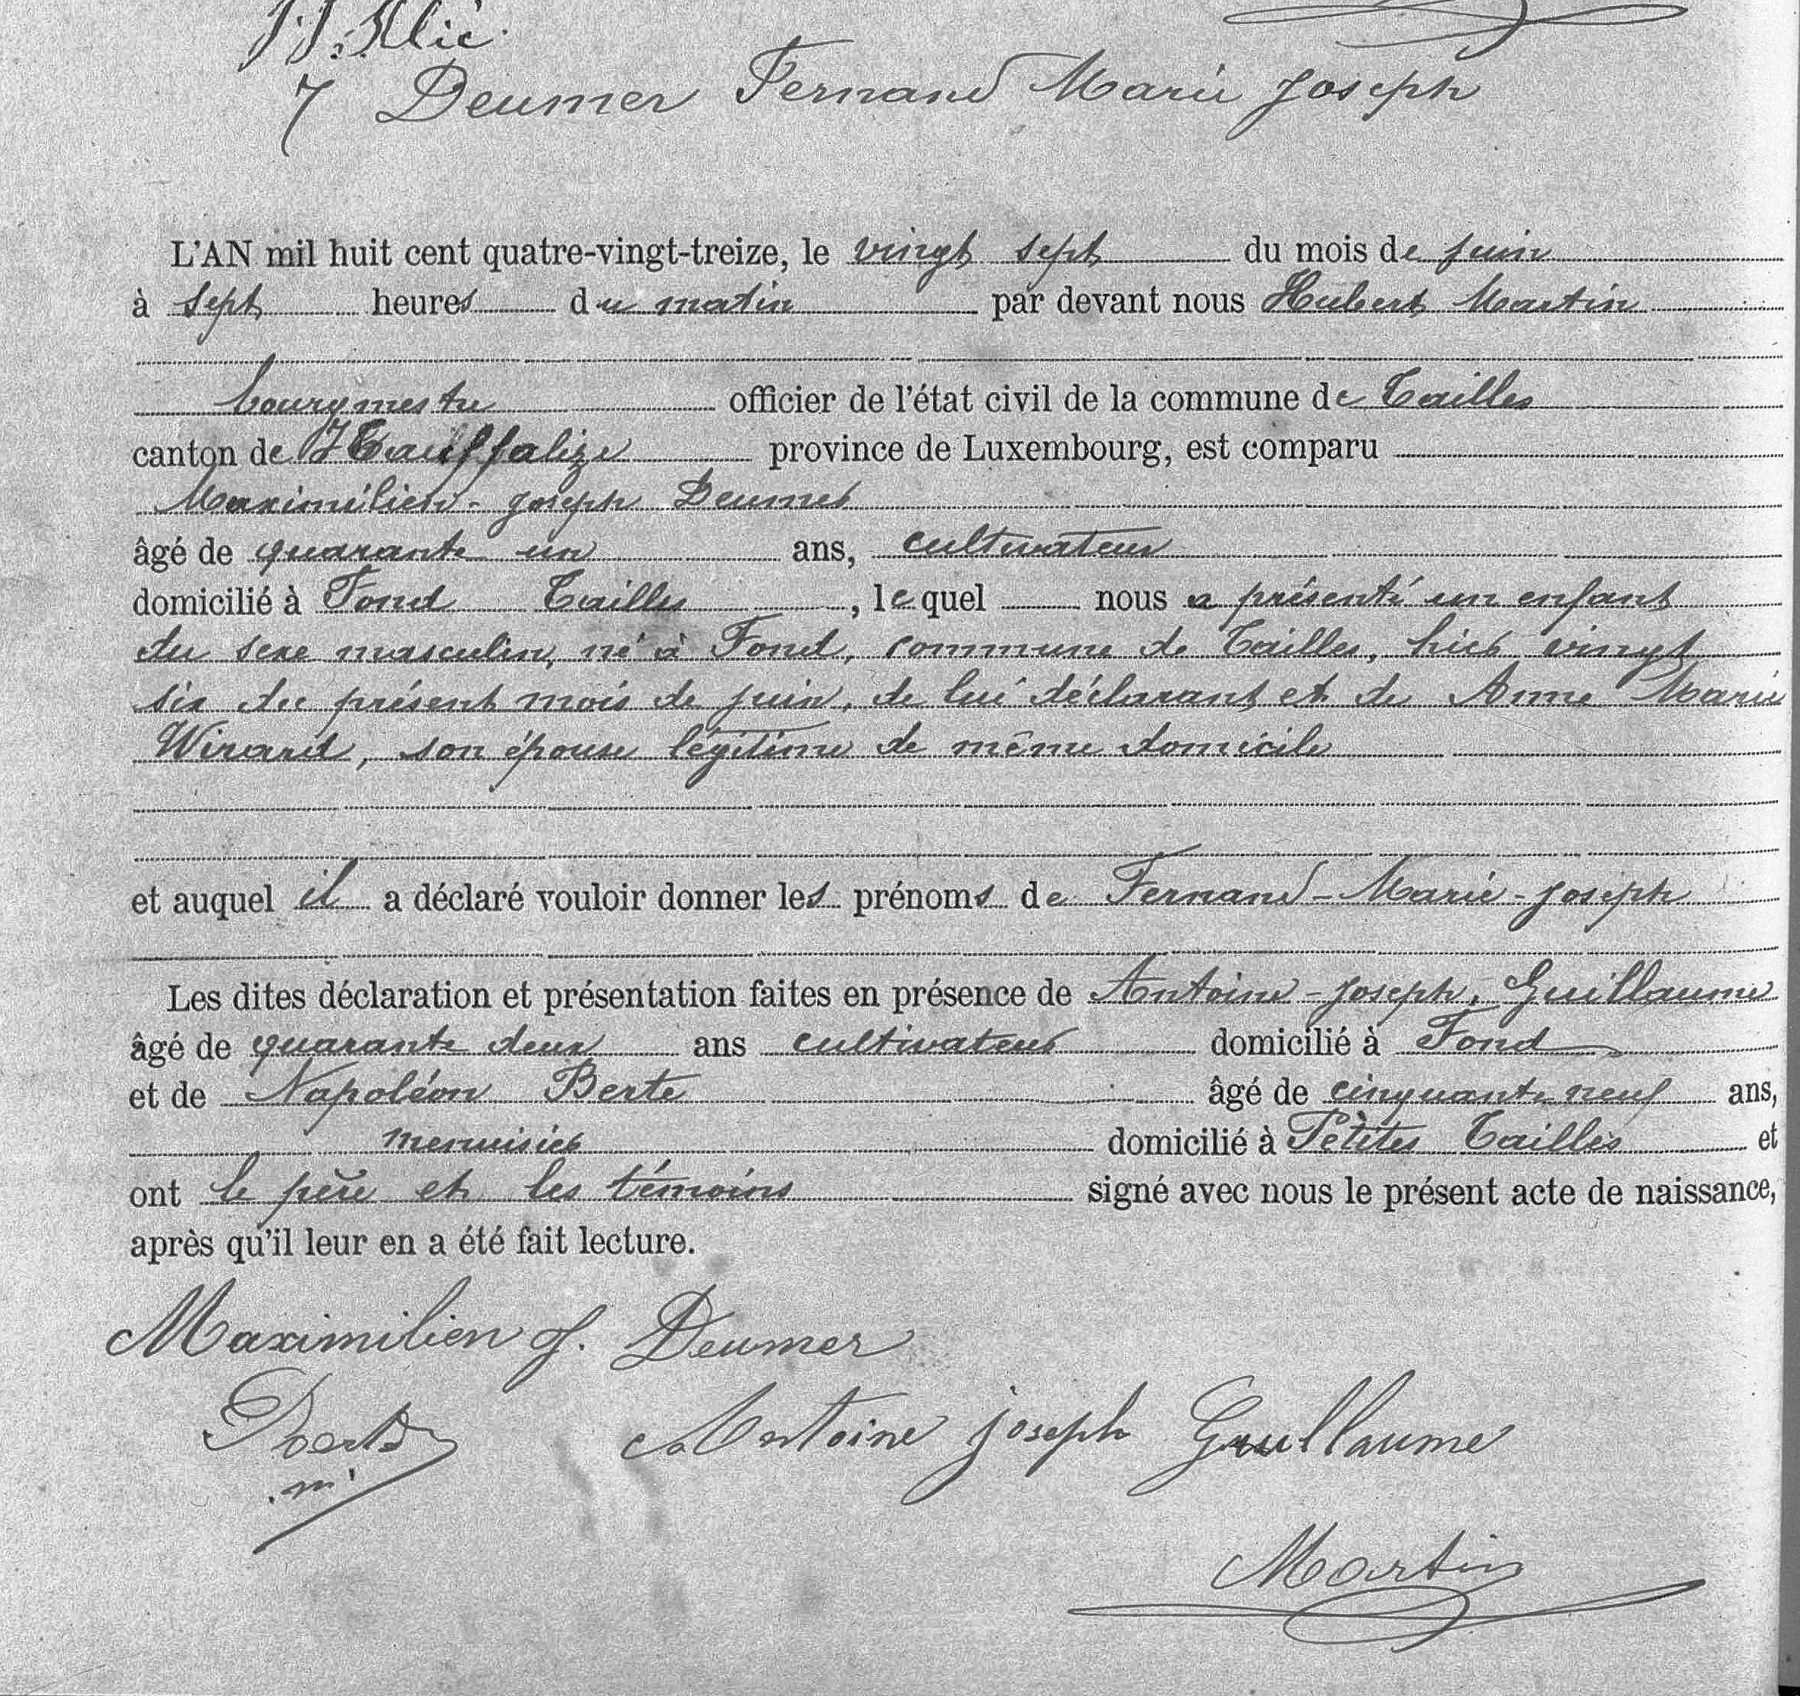 7 Deumer Fernand Marie Joseph
L'AN mil huit cent quatre-vingt-treize, le vingt sept du mois de juin
à sept heures du matin par devant nous Hubert Martin
bourgmestre officier de l'état civil de la commune de Tailles
canton de Houffalize province de Luxembourg, est comparu
Maximilien - Joseph Deumer
âgé de quarante un ans, cultivateur
domicilié à Fond Tailles, lequel nous a présenté un enfant
du sexe masculin, né à Fond, commune de Tailles, hier vingt
six du présent mois de juin, de lui déclarant et de Anne Marie
Wirard, son épouse légitime de même domicile
et auquel il a déclaré vouloir donner les prénoms de Fernand - Marie - Joseph
Les dites déclaration et présentation faites en présence de Antoine - Joseph, Guillaume
âgé de quarante deux ans cultivateur domicilié à Fond
et de Napoléon Berte âgé de cinquante neuf ans,
menuisier domicilié à Petites Tailles et
ont le père et les témoins signé avec nous le présent acte de naissance,
après qu'il leur en a été fait lecture.
Maximilien J. Deumer
Antoine joseph Guillaume
Martin